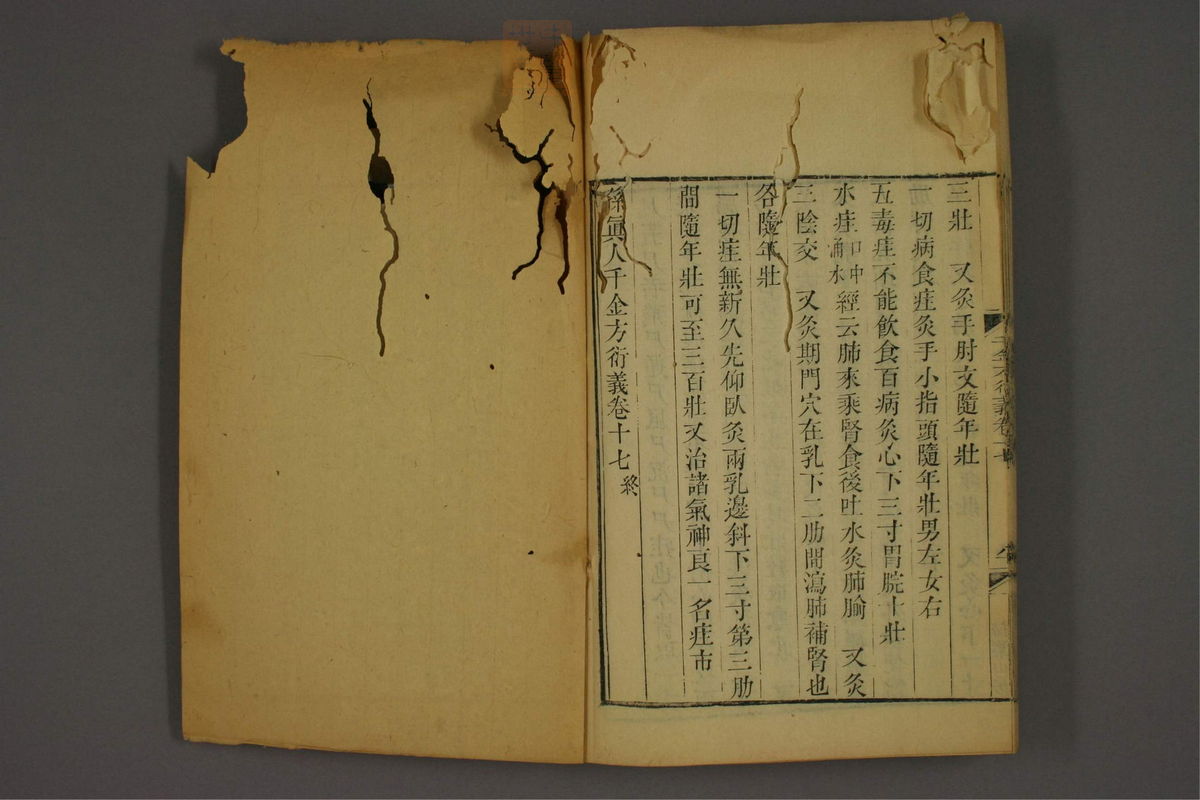 三壯　又灸手肘文隨年壯
一切病食疰灸手小指頭隨年壯男左女右
五毒疰不能飲食百病灸心下三寸胃脘十壯
水疰口中涌水經云肺來乘腎食後吐水灸肺腧　又灸
三陰交　又灸期門穴在乳下二肋間瀉肺補腎也
各隨年壯
一切疰無新久先仰臥灸兩乳邊斜下三寸第三肋
間隨年壯可至三百壯又治諸氣神良一名疰市
孫眞人千金方衍義卷十七終